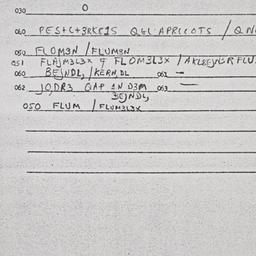 030 0
040 PESTC+3RKE1S Q&L APRICOTS / QN
050 FLOM3N / FLUM3N
051 FLAJM3L3X & FLOM3L3X / AKLEEJNSR FLU
060 BEJNDL, / KERN, DL 061 —
062 JO, DR3 GAP IN D3M 063 —
BEJNDL,
050 FLUM / FLUM3L3X